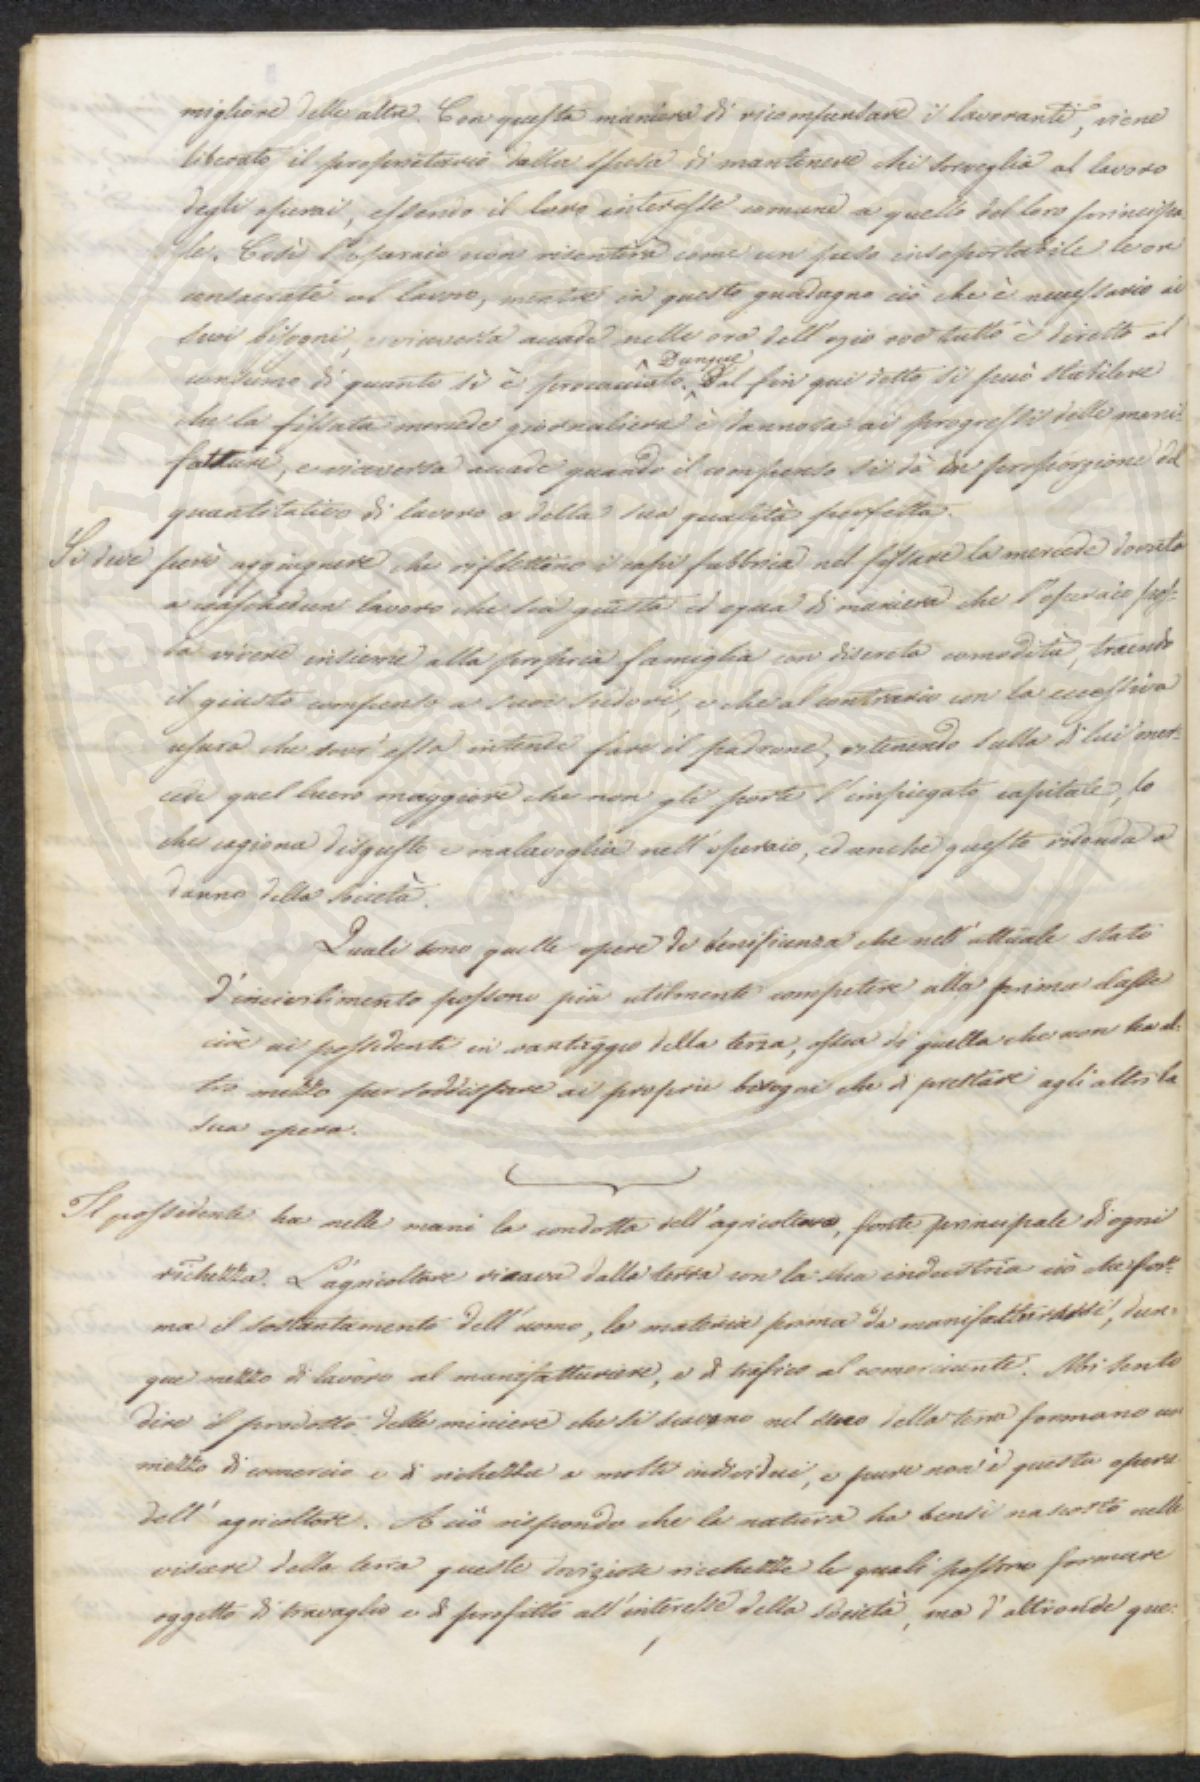 migliore delle altre. Con questa maniera di ricompensare i lavoranti, viene
liberato il proprietario dalla spesa di mantenere chi sorveglia al lavoro
degli operai, essendo il loro interesse comune a quello del loro principa
le. Così l'operaio non risentirà come un peso insoportabile le ore
consacrate al lavoro, mentre in questo guadagna ciò che è necessario ai
suoi bisogni, e viceversa accade nelle ore dell'ozio ove tutto è diretto al
Dunque
consumo di quanto si è procacciato. Dal fin qui detto si può stabilire
che la fissata mercede giornaliera è dannosa ai progressi delle mani-
fatture, e viceversa accade quando il compenso si dà in proporzione del
quantitativo di lavoro e della sua qualità perfetta.
Si deve però aggiugnere che riflettino i capi fabbrica nel fissare la mercede dovuta
a ciaschedun lavoro che sia giusta ed equa di maniera che l'operaio pos-
sa vivere insieme alla propria famiglia con discreta comodità, traendo
il giusto compenso a suoi sudori, e che al contrario con la eccessiva
usura che sovr'essa intende fare il padrone, ritenendo sulla di lui mer-
cede quel lucro maggiore che non gli porta l'impiegato capitale, lo
che cagiona disgusto e malavoglia nell'operaio, ed anche questo ridonda a
danno della società.
Quali sono quelle opere di benificenza che nell'attuale stato
d'incivilimento possono più utilmente competere alla prima classe
cioè ai possidenti in vantaggio della terza, ossia di quella che non ha al-
tro mezzo per soddisfare ai proprii bisogni che di prestare agli altri la
sua opera.
Il possidente ha nelle mani la condotta dell'agricoltura, fonte principale di ogni
richezza. L'agricoltore ricava dalla terra con la sua industria ciò che for-
ma il sostentamento dell'uomo, la materia prima da manifatturarsi, dun-
que mezzo di lavoro al manifatturiere, e di trafico al comerciante. Mi sento
dire il prodotto delle miniere che si scavano nel seno della terra formano un
mezzo di comercio e di richezza a molti individui, e pure non è questa opera
dell'agricoltore. A ciò rispondo che la natura ha bensì nascosto nelle
viscere della terra queste doviziose ricchezze le quali possono formare
oggetto di travaglio e di profitto all'interesse della società, ma d'altronde que-